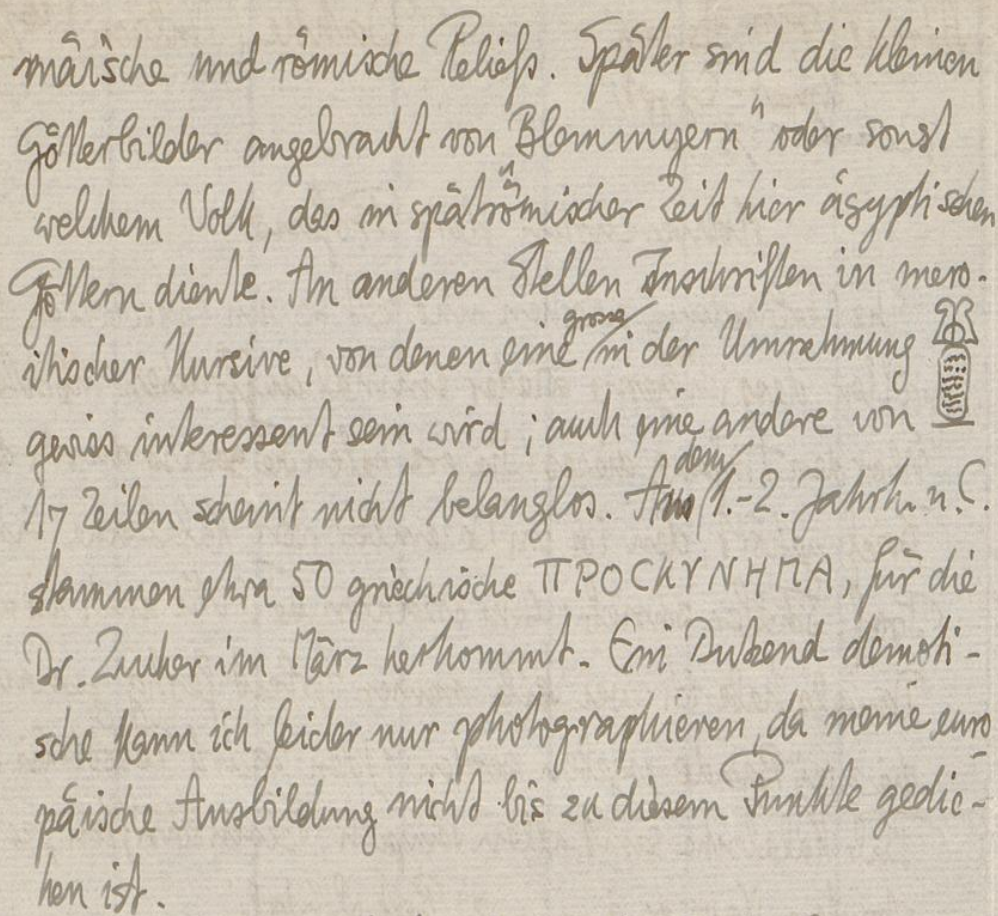 mäische und römische Reliefs. Später sind die kleinen
Götterbilder angebracht von "Blemmyern" oder sonst
welchem Volk, das in spätrömischer Zeit hier ägyptischen
Göttern diente. An anderen Stellen Inschriften in mero-
itischer Kursive, von denen eine grosse in der Umrahmung
gewiss interessent sein wird; auch eine andere von
17 Zeilen scheint nicht belanglos. Aus dem 1.-2. Jahrh. n. C.
stammen etwa 50 griechische ΠΡΟСΚΥΝΗΜΑ, für die
Dr. Zucker im März herkommt. Ein Dutzend demoti-
sche kann ich leider nur photographieren, da meine euro-
päische Ausbildung nicht bis zu diesem Punkte gedie-
hen ist.